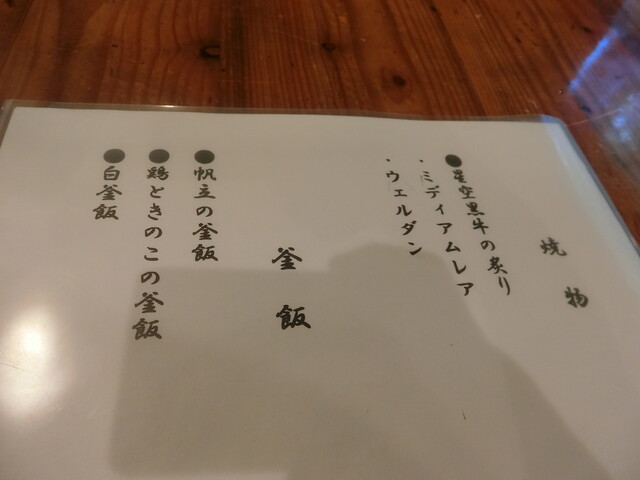 焼物
●星空黒牛の炙り
・ミディアムレア
・ウェルダン
釜飯
●帆立の釜飯
●鶏ときのこの釜飯
●白釜飯